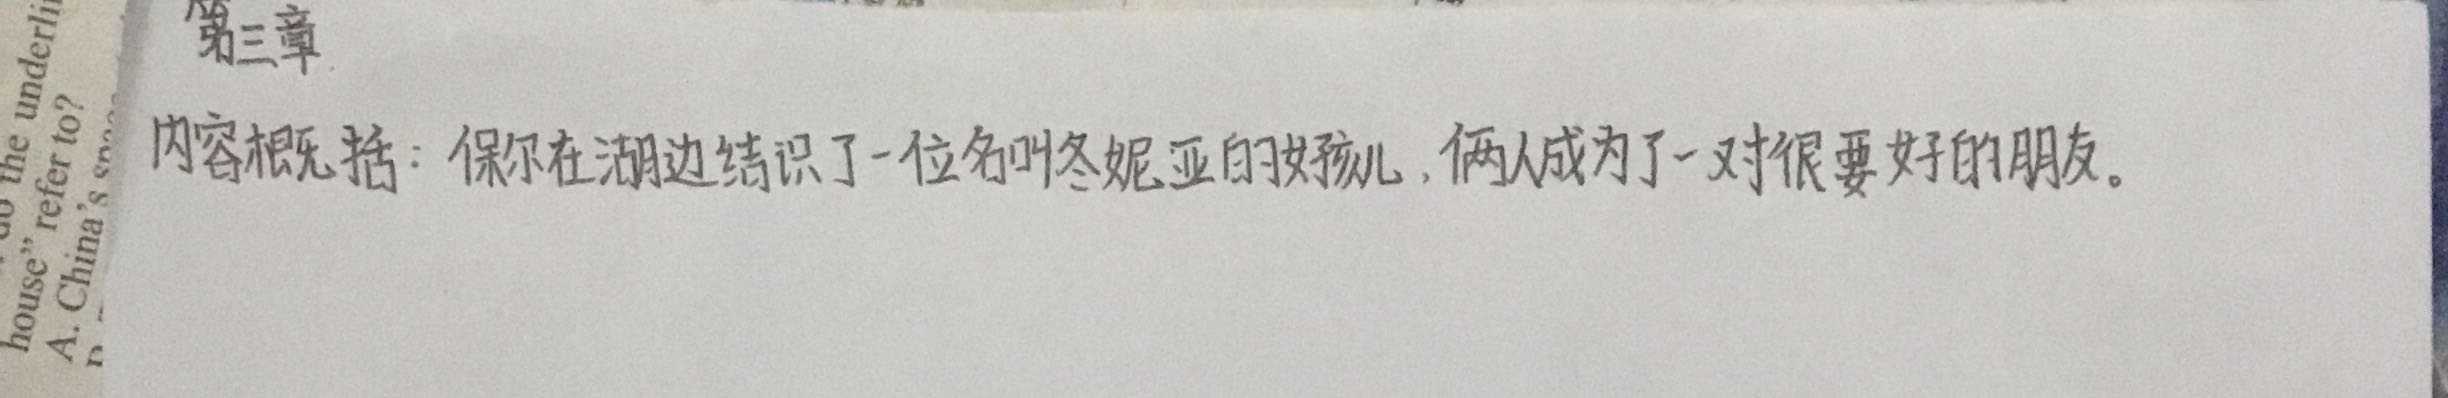 第三章
内容概括：保尔在湖边结识了一位名叫冬妮亚的女孩儿，俩人成为了一对很要好的朋友。
do the underli
house” refer to?
A. China's